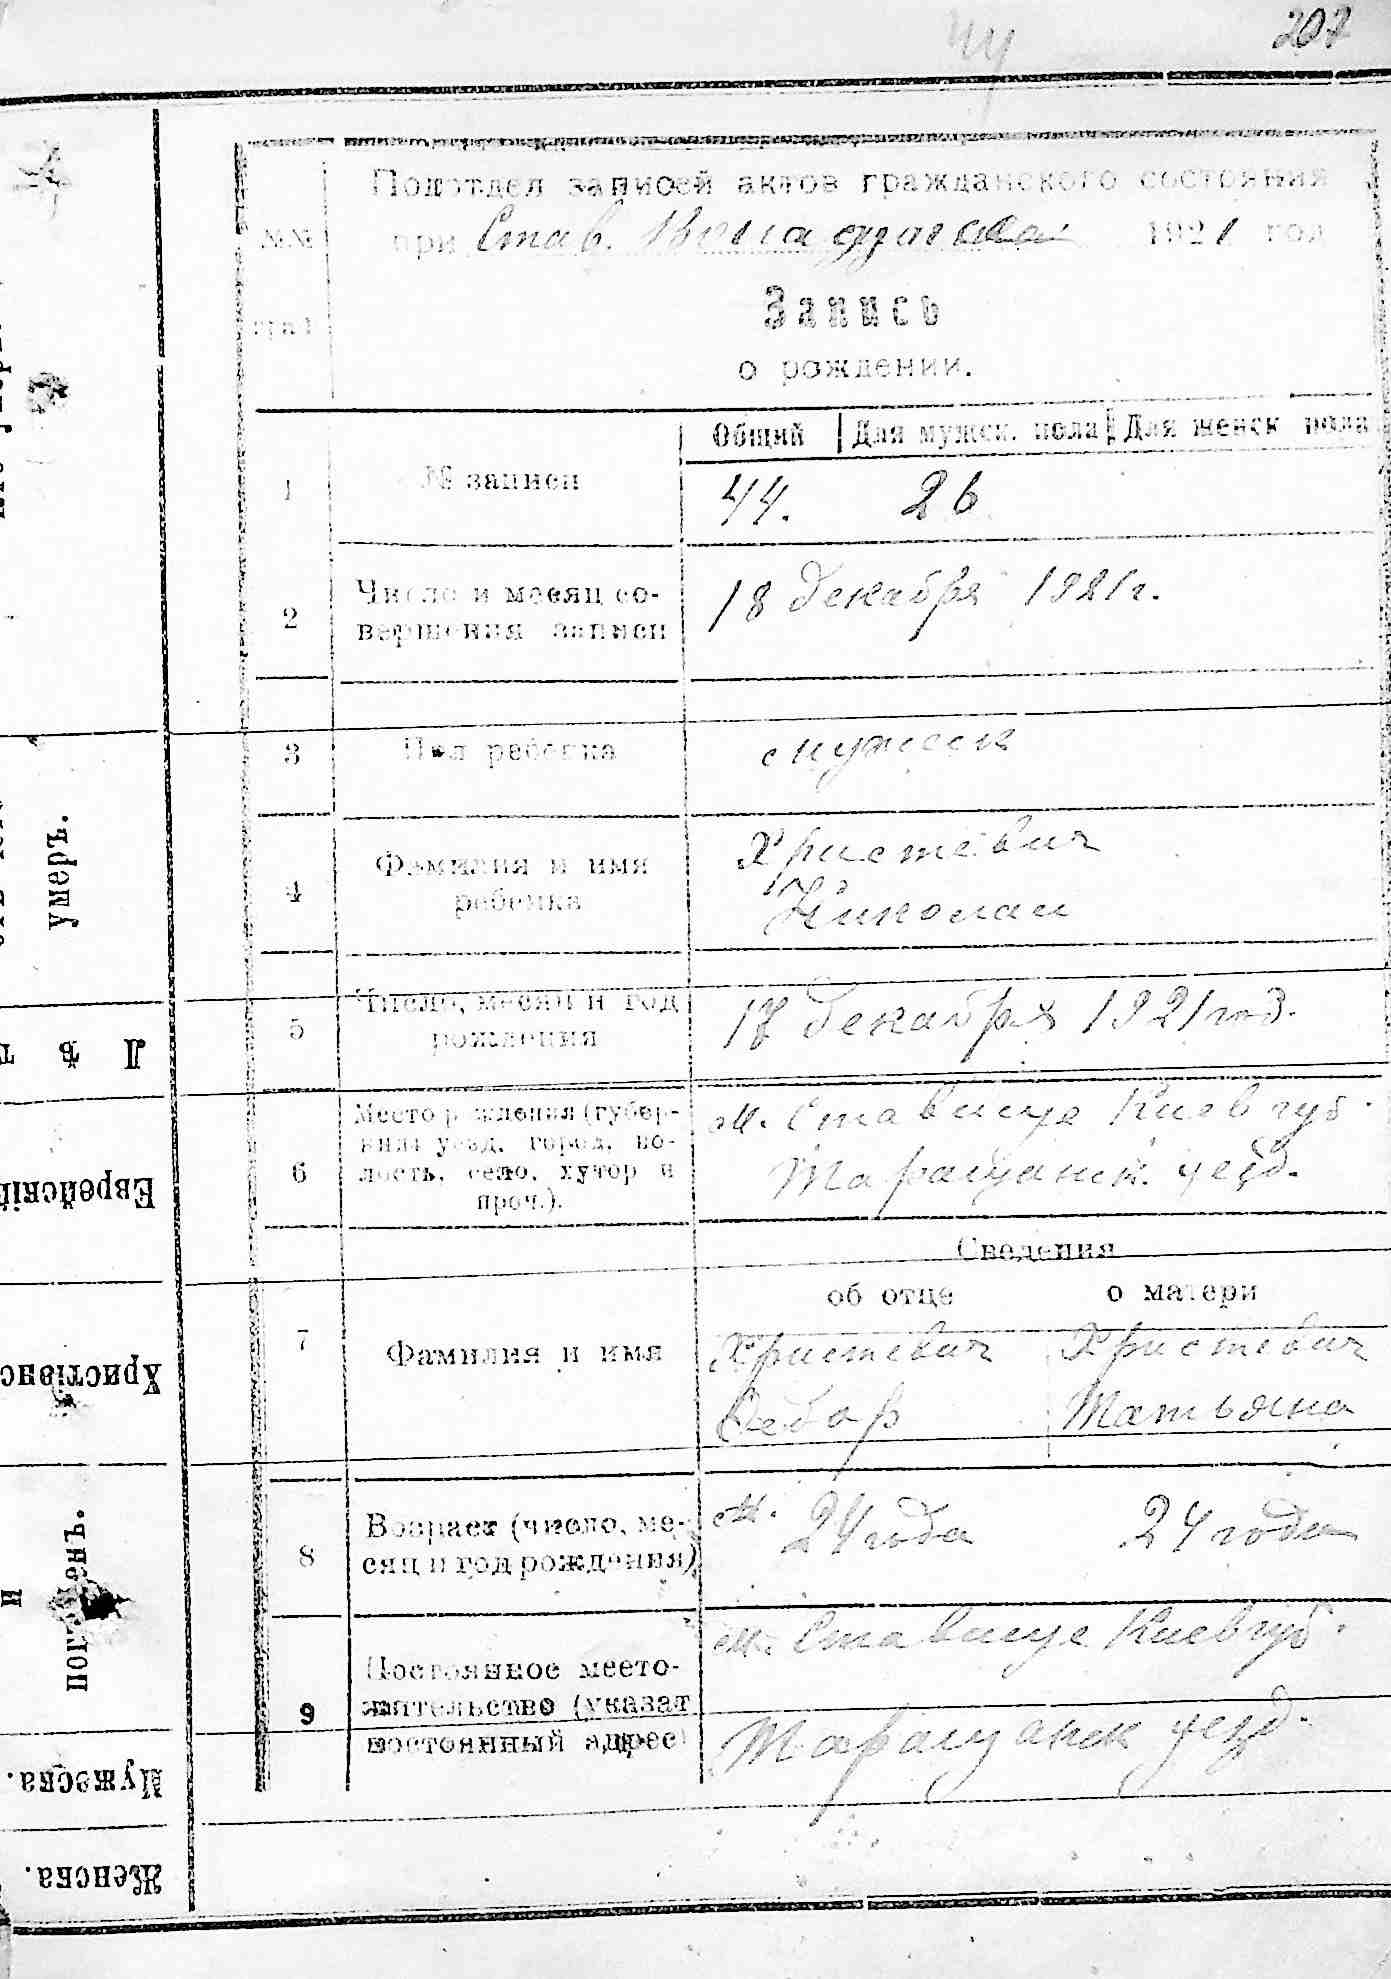 44
207
Подотдел записей актов гражданского состояния
№№
при Став. 1921 год
граф
Запись
о рождении.
Общий Для мужск. пола Для женск пола
1 № записи 44. 26
2 Число и месяц со-
вершения записи 18 декабря 1921 г.
3 Пол ребенка мужеск
4 Фамилия и имя
ребенка Христевич
Николай
5 Число, месяц и год
рождения 17 декабря 1921 год.
6 Место рождения (губер-
ния уезд, город, во-
лость, село, хутор и
проч.).
м. Ставище Киев губ.
Таращанск. уезд.
Сведения
об отце о матери
7 Фамилия и имя Христевич Христевич
Федор Татьяна
8 Возраст (число, ме-
сяц и год рождения) 24 года 24 года
9 Постоянное место-
жительство (указат
постоянный адрес)
м. Ставище Киев губ.
Таращанск уезд.
умеръ.
Лѣт
Еврейскій
Христіанс
и
погребенъ.
Мужеска.
Женска.